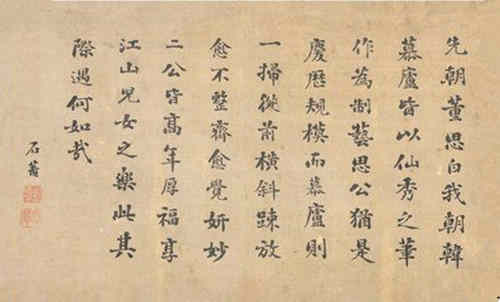 先朝董思白我朝韓
慕廬皆以仙秀之筆
作為制藝思公猶是
慶歷規模而慕廬則
一掃從前橫斜踈放
愈不整齊愈覺妍妙
二公皆高年厚福享
江山兒女之樂此其
際遇何如哉
石菴